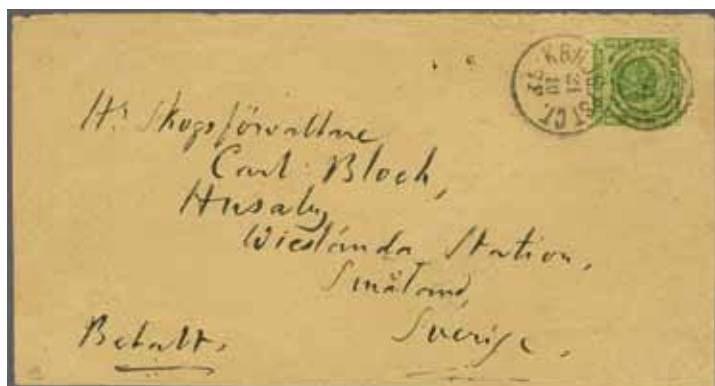 KBH
21
10
Hr Skogsförvaltare
Carl Bloch,
Husaby,
Wieslanda Station,
Småland,
Betalt,
Sverige.